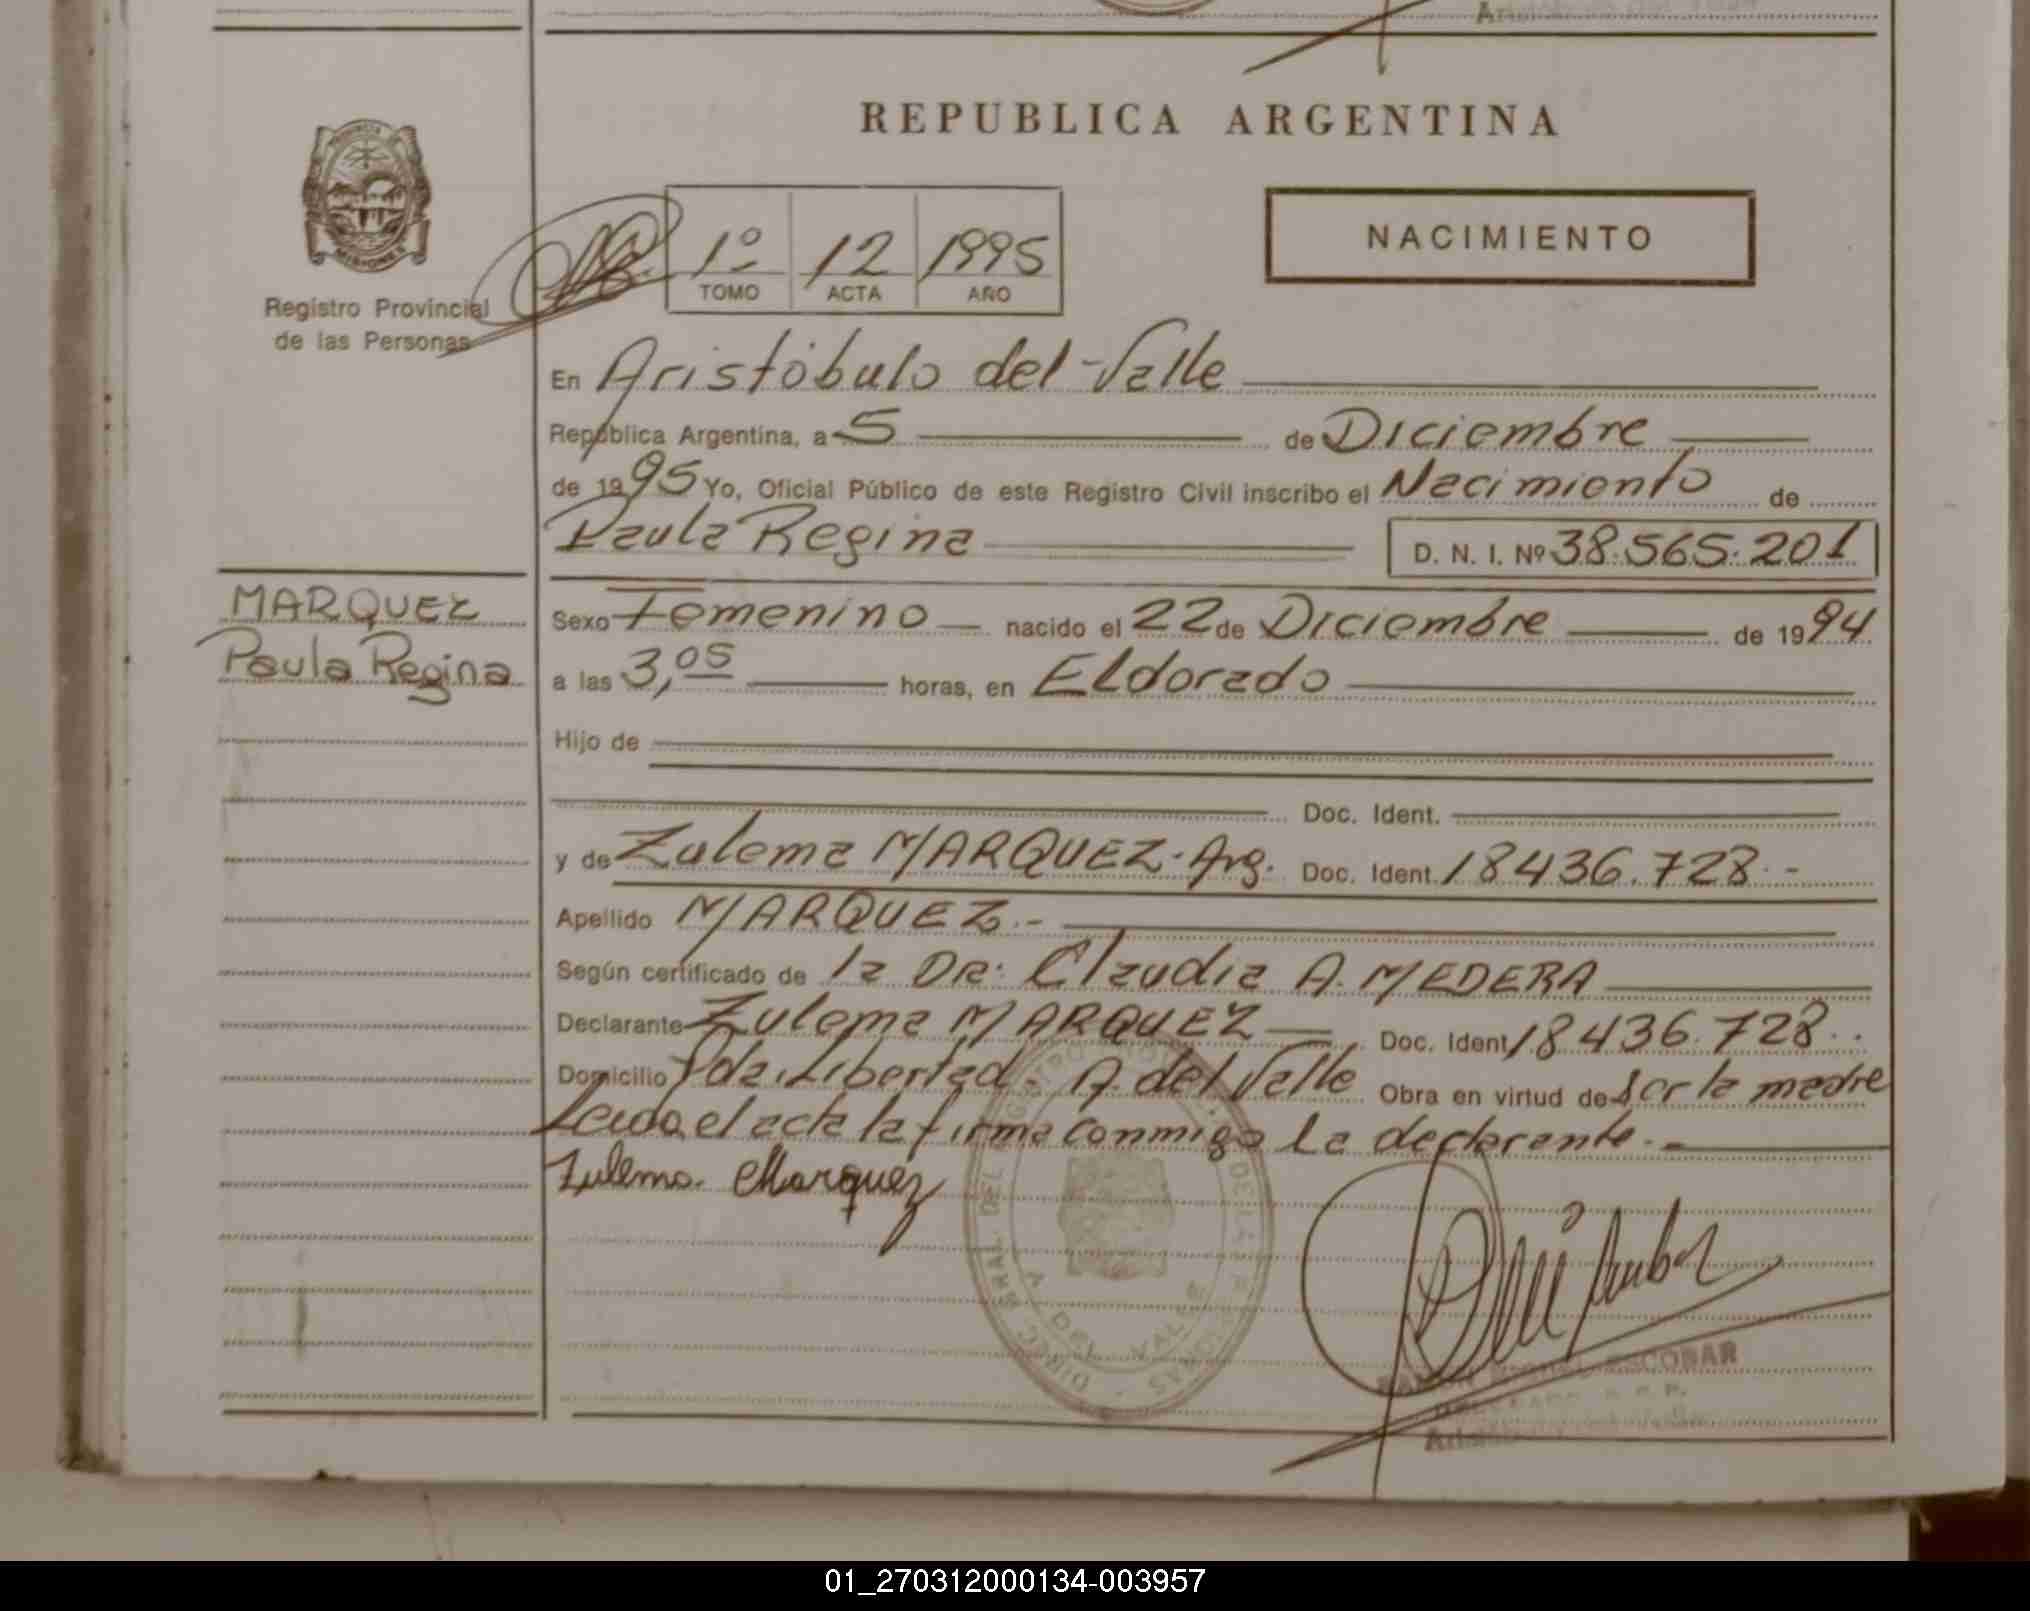 REPUBLICA ARGENTINA
PROVINCIA
MISIONES
Registro Provincial
de las Personas
1º 12 1995
TOMO ACTA AÑO
NACIMIENTO
En Aristóbulo del Valle
República Argentina, a 5 de Diciembre
de 1995 Yo, Oficial Público de este Registro Civil inscribo el Nacimiento de
Paula Regina D. N. I. Nº 38.565.201
MARQUEZ
Paula Regina
Sexo Femenino nacido el 22 de Diciembre de 1994
a las 3,05 horas, en Eldorado
Hijo de
Doc. Ident.
y de Zulema MARQUEZ-Arg. Doc. Ident. 18436.728.-
Apellido MARQUEZ.-
Según certificado de la Dra. Claudia A. MEDERA
Declarante Zulema MARQUEZ Doc. Ident 18436.728..
Domicilio Pda. Libertad. A. del Valle Obra en virtud de Ser la madre
Leida el acta la firma conmigo la declarante.-
Zulema Marquez
ESCOBAR
01_270312000134-003957